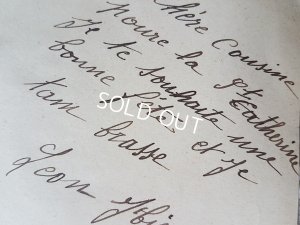 Chère Cousine
Poure la Ste Catherine
Je te souhaite une
bonne fête et Je
tambrasse
Jeon
SOLD OUT